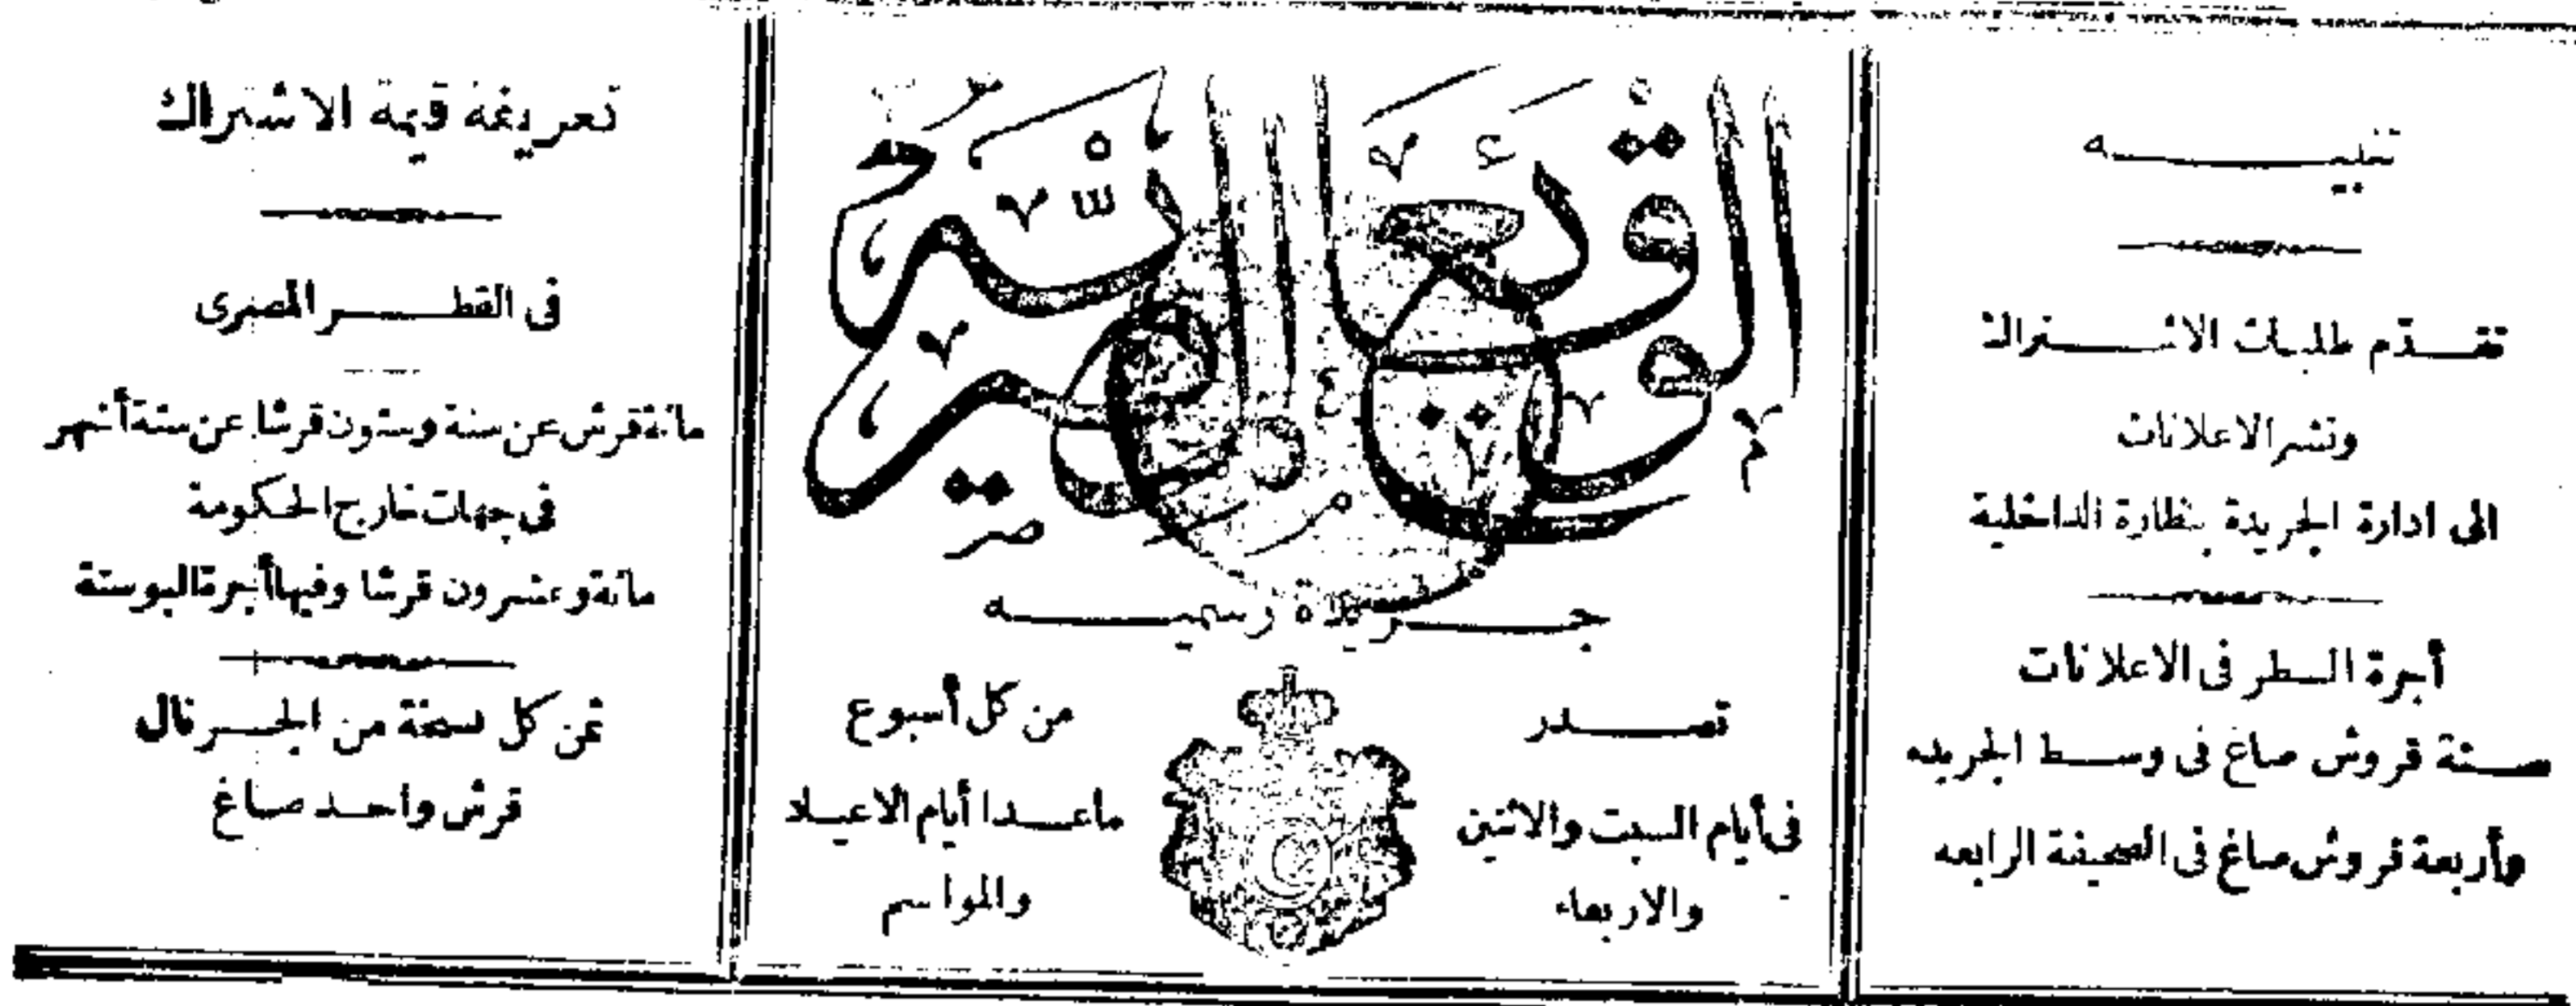 تنبيه
تقدّم طلبات الاشتراك
ونشر الاعلانات
الى ادارة الجريدة بنظارة الداخلية
أجرة السطر فى الاعلانات
ستة قروش صاغ فى وسط الجريده
وأربعة قروش صاغ فى الصحيفة الرابعه
الوقائع المصرية
جريدة رسميه
تصدر
فى أيام السبت والاثنين
والاربعاء
من كل أسبوع
ماعدا أيام الاعياد
والمواسم
تعريفة قيمة الاشتراك
فى القطر المصرى
مائة قرش عن سنة وستون قرشا عن ستة أشهر
فى جهات خارج الحكومة
مائة وعشرون قرشا وفيها أجرة البوستة
ثمن كل نسخة من الجرنال
قرش واحد صاغ